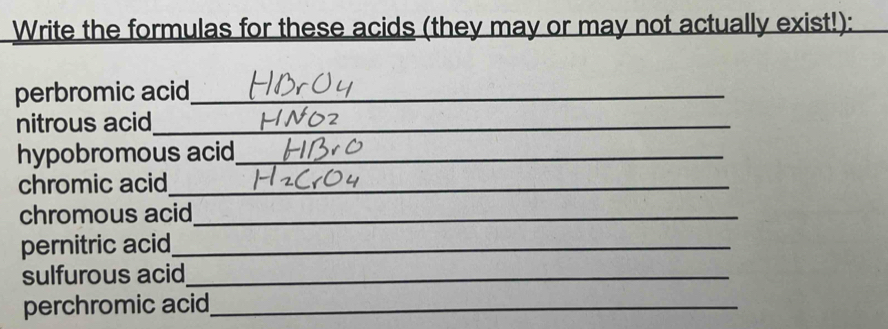 Write the formulas for these acids (they may or may not actually exist!):
perbromic acid HBrO4
nitrous acid HNO2
hypobromous acid HBrO
chromic acid H2CrO4
chromous acid
pernitric acid
sulfurous acid
perchromic acid